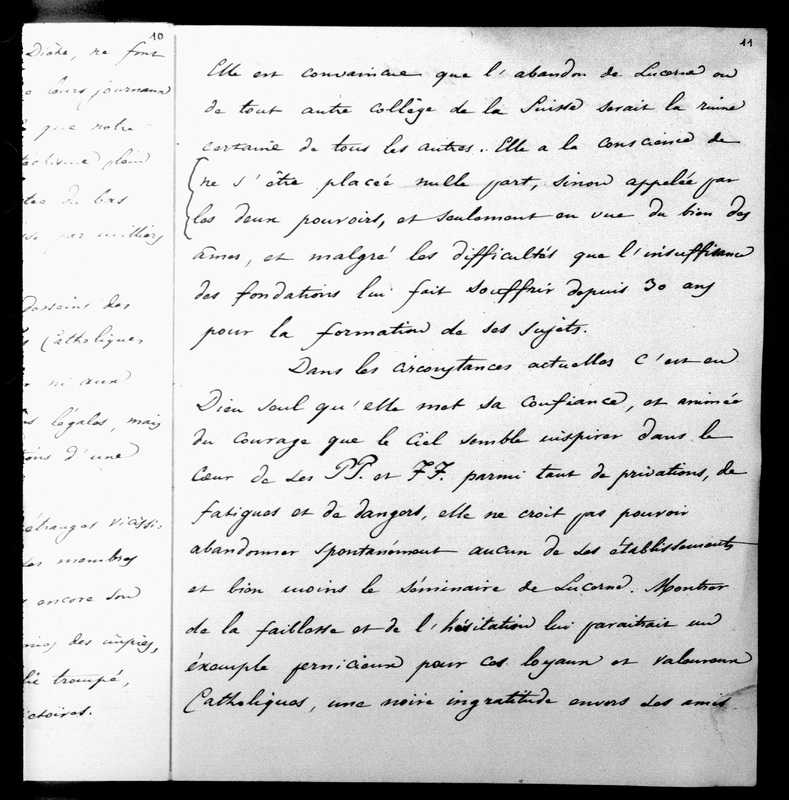 10
Diète, ne font
leurs journaux
que notre
plein
du bas
par milliers
desseins des
Catholiques
ni aux
légales, mais
d'une
étranges vicissi-
membres
encore son
des impies,
trompé,
victoires.
11
Elle est convaincue que l'abandon de Lucerne ou
de tout autre collège de la Suisse serait la ruine
certaine de tous les autres. Elle a la conscience de
ne s'être placée nulle part, sinon appelée par
les deux pouvoirs, et seulement en vue du bien des
âmes, et malgré les difficultés que l'insuffisance
des fondations lui fait souffrir depuis 30 ans
pour la formation de ses sujets.
Dans les circonstances actuelles c'est en
Dieu seul qu'elle met sa confiance, et animée
du courage que le Ciel semble inspirer dans le
Cœur de ses PP. et FF. parmi tant de privations, de
fatigues et de dangers, elle ne croit pas pouvoir
abandonner spontanément aucun de ses établissements
et bien moins le séminaire de Lucerne. Montrer
de la faiblesse et de l'hésitation lui paraitrait un
éxemple pernicieux pour ces loyaux et valeureux
Catholiques, une noire ingratitude envers ses amis